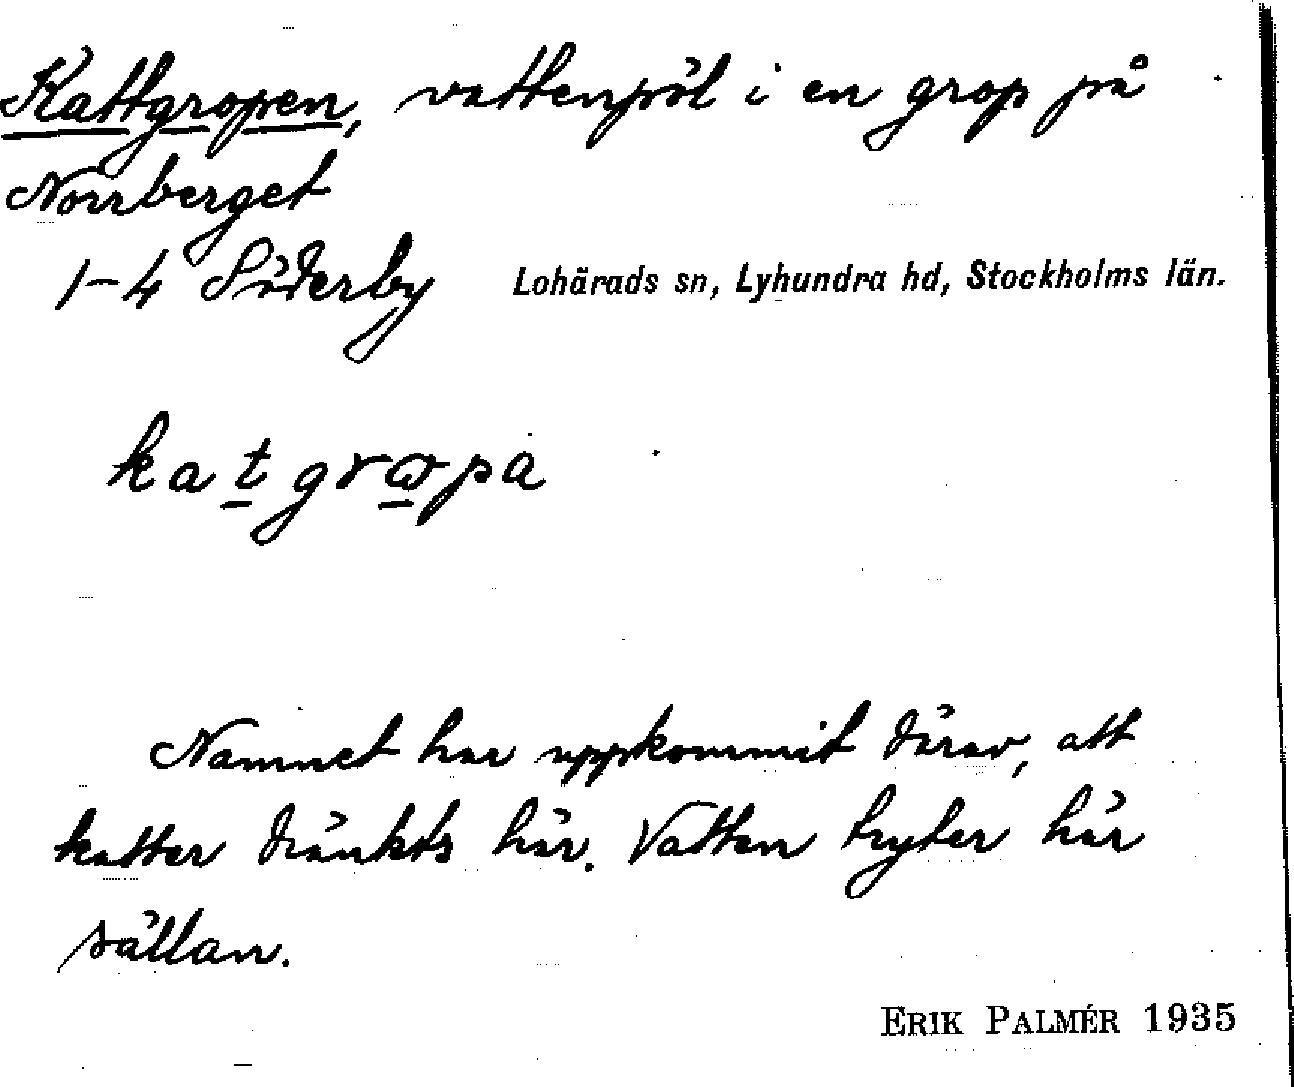 Kattgropen, vattenpöl i en grop på
Norrberget
1-4 Söderby Lohärads sn, Lyhundra hd, Stockholms län.
katgrɷpa
Namnet har uppkommit därav, att
katter dränkts här. Vatten tryter här
sällan.
ERIK PALMÉR 1935